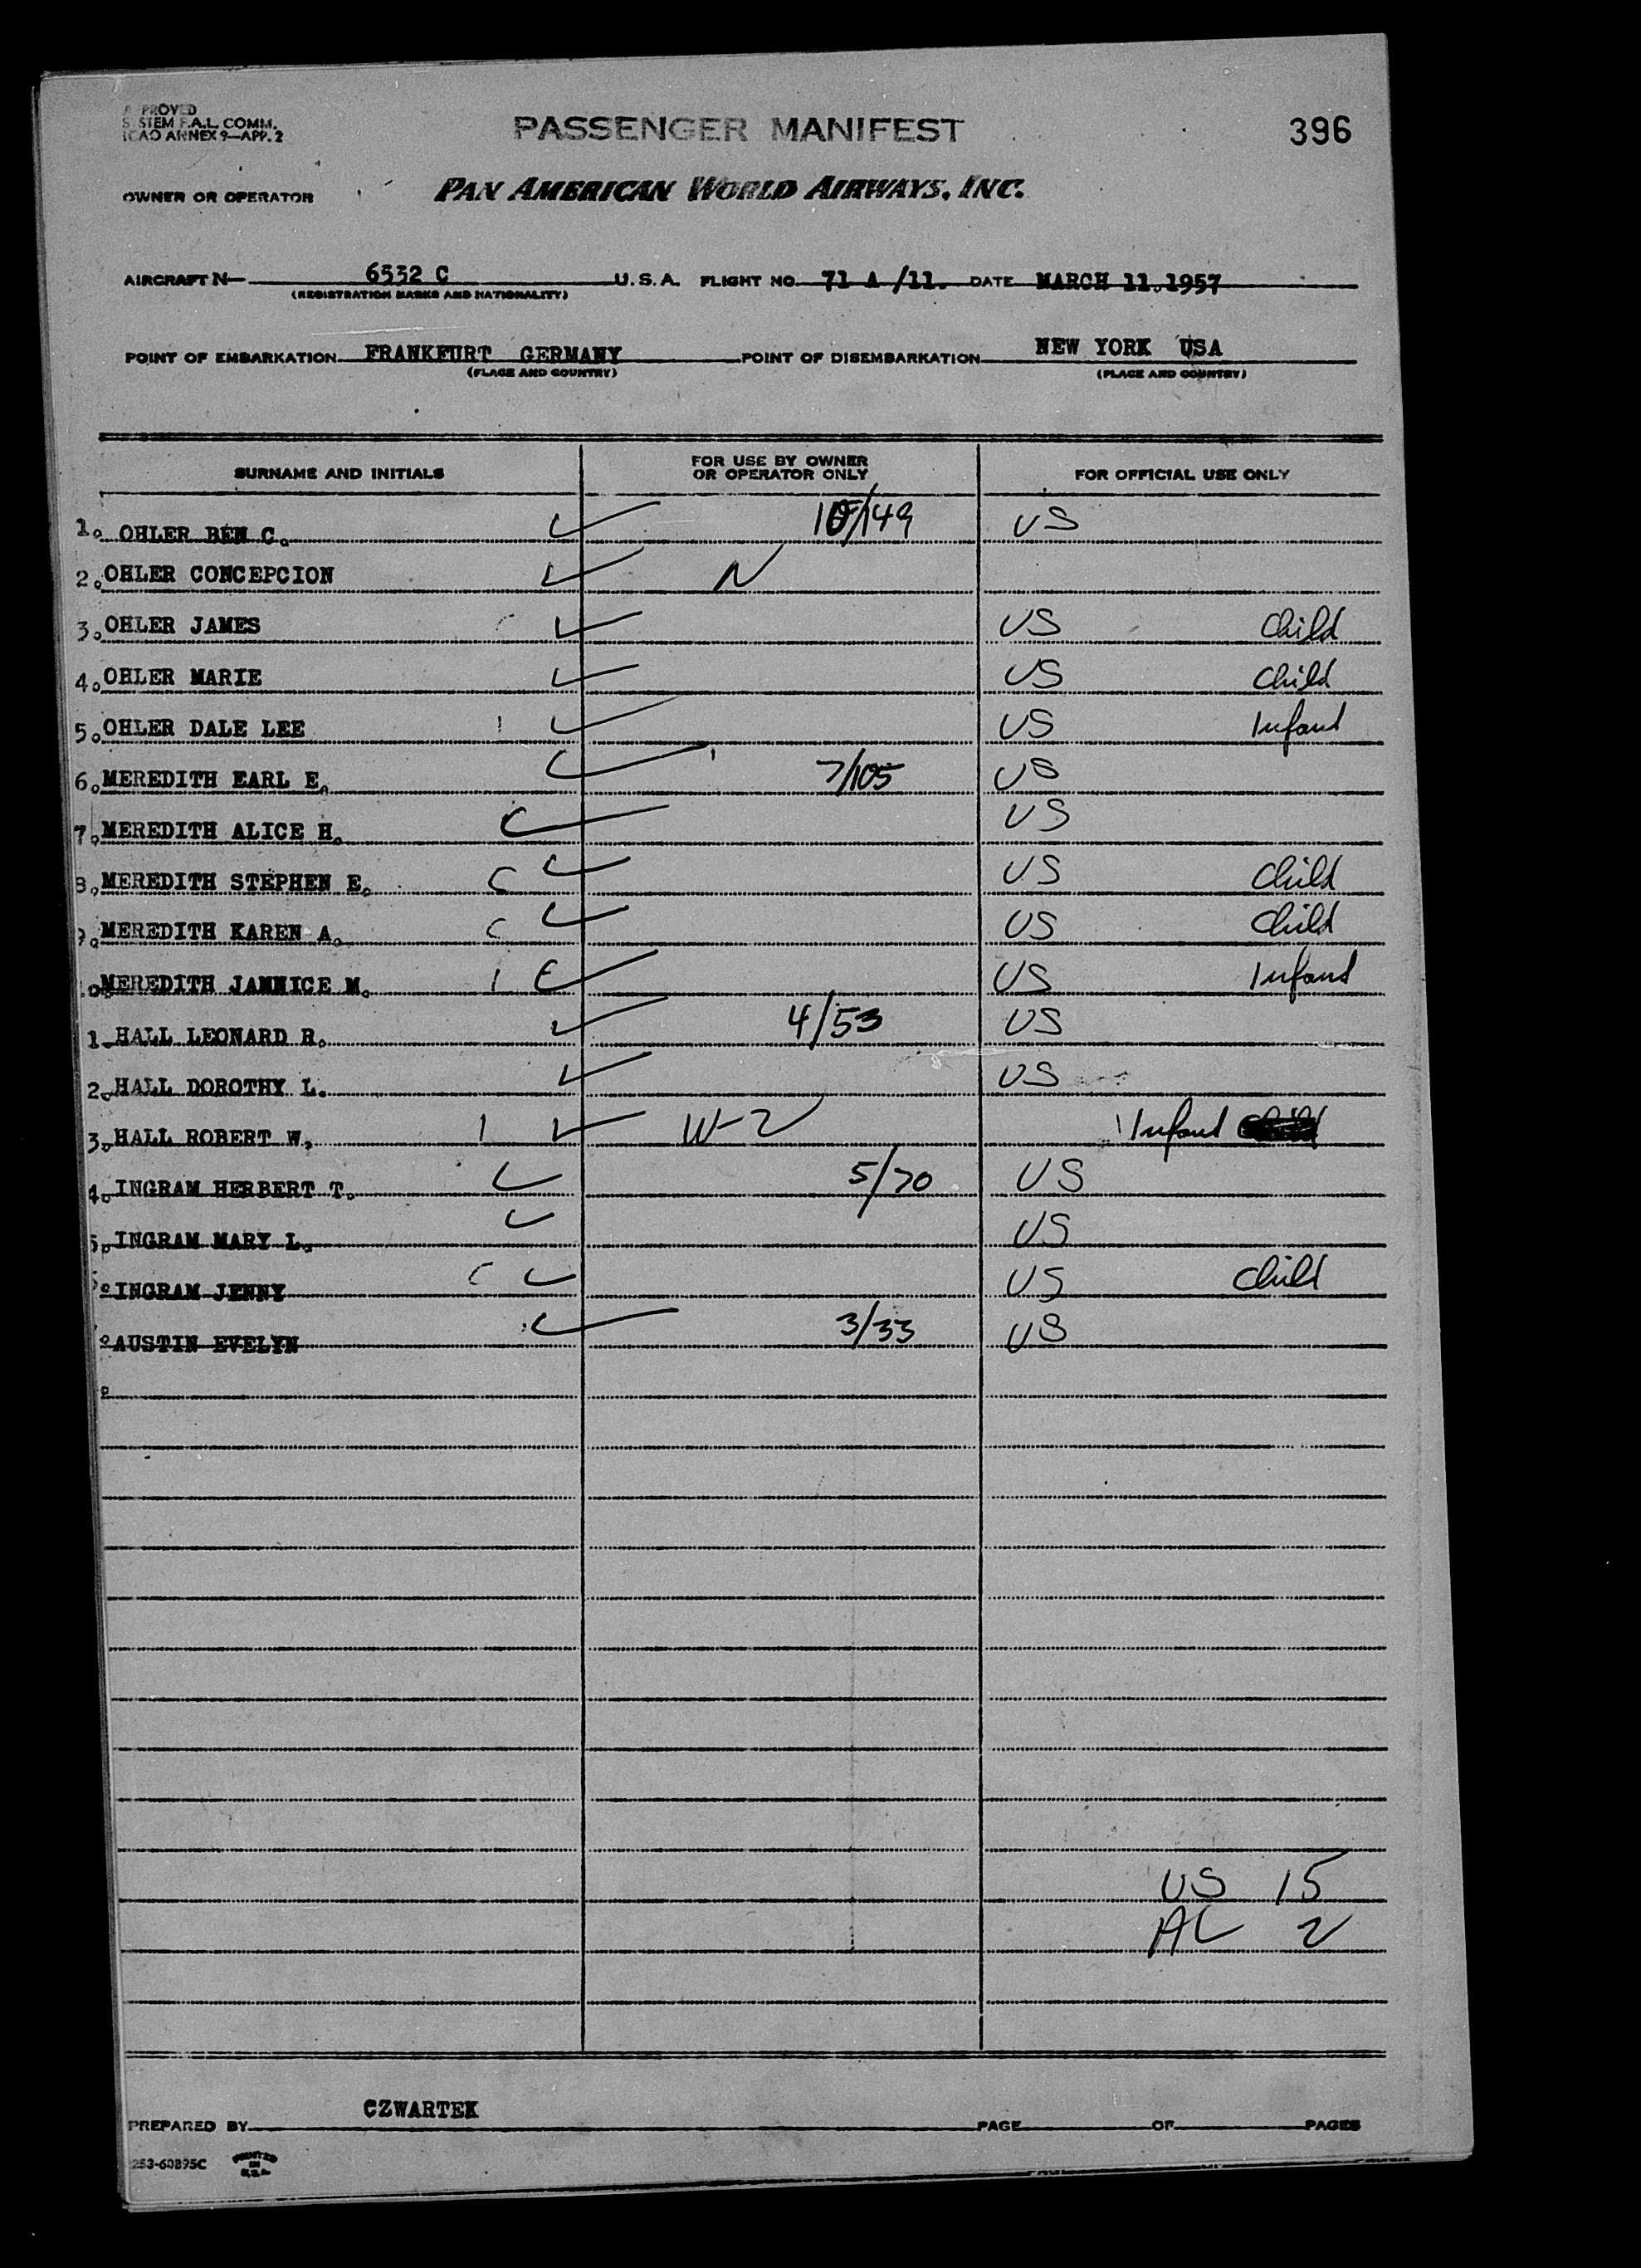 APPROVED
SYSTEM F.A.L. COMM.
ICAO ANNEX 9—APP. 2
PASSENGER MANIFEST
396
OWNER OR OPERATOR
PAN AMERICAN WORLD AIRWAYS, INC.
AIRCRAFT N— 6532 C U.S.A. FLIGHT NO. 71 A /11. DATE MARCH 11.1957
(REGISTRATION MARKS AND NATIONALITY)
POINT OF EMBARKATION FRANKFURT GERMANY POINT OF DISEMBARKATION NEW YORK USA
(PLACE AND COUNTRY) (PLACE AND COUNTRY)
SURNAME AND INITIALS FOR USE BY OWNER OR OPERATOR ONLY FOR OFFICIAL USE ONLY
1. OHLER BEN C. 10/149 US
2. OHLER CONCEPCION N
3. OHLER JAMES US Child
4. OHLER MARIE US Child
5. OHLER DALE LEE 1 US Infant
6. MEREDITH EARL E. 7/105 US
7. MEREDITH ALICE H. US
8. MEREDITH STEPHEN E. C US Child
9. MEREDITH KAREN A. C US Child
0. MEREDITH JANNICE M. 1 US Infant
1. HALL LEONARD R. 4/53 US
2. HALL DOROTHY L. US
3. HALL ROBERT W. 1 W-2 Infant
4. INGRAM HERBERT T. 5/70 US
5. INGRAM MARY L. US
INGRAM JENNY C US Child
AUSTIN EVELYN 3/33 US
US 15
AL 2
PREPARED BY CZWARTEK PAGE OF PAGES
253-60895C PRINTED IN U.S.A.